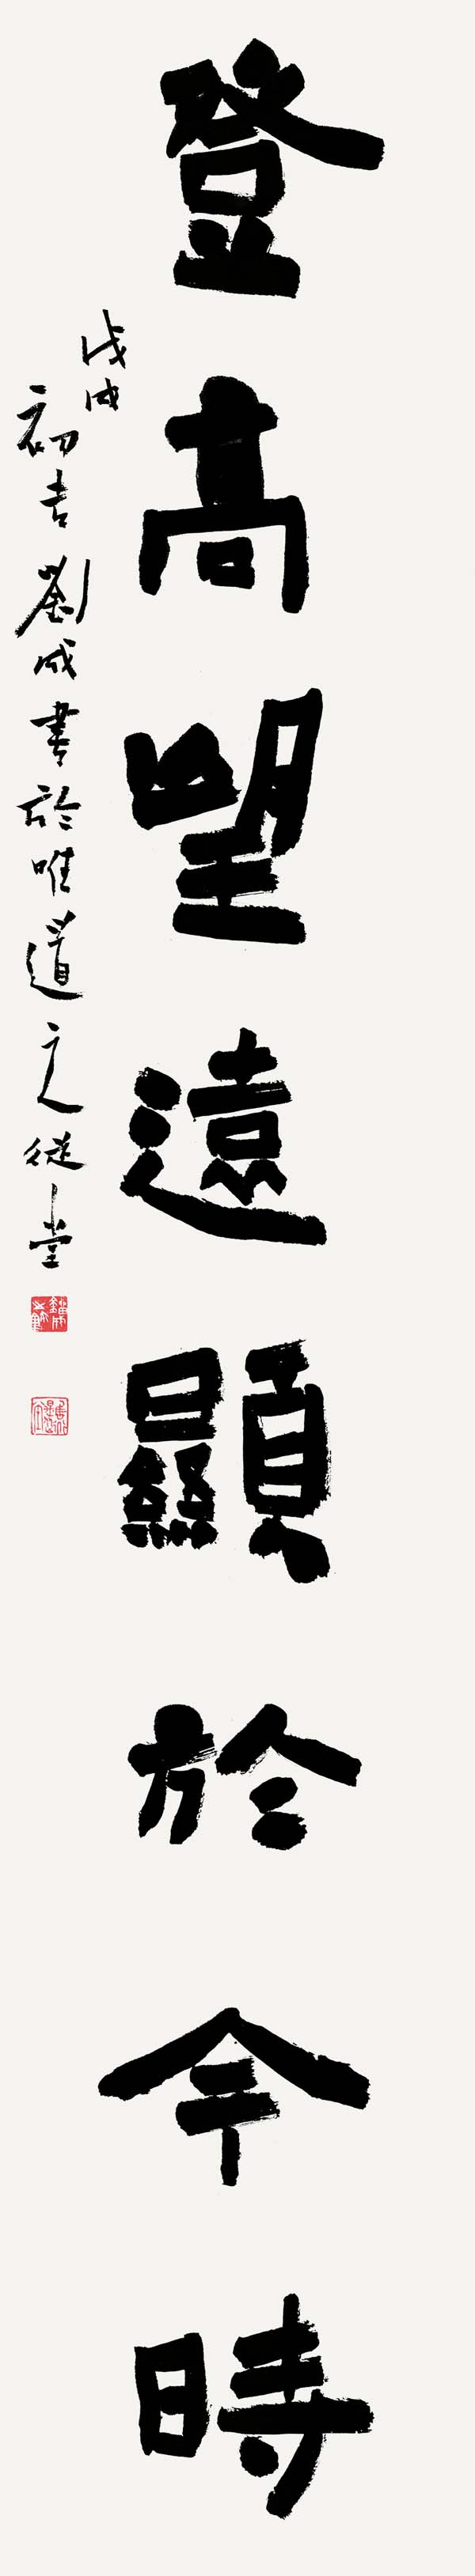 登高望遠顯於今時
戊戌
初吉劉成書於唯道之從堂